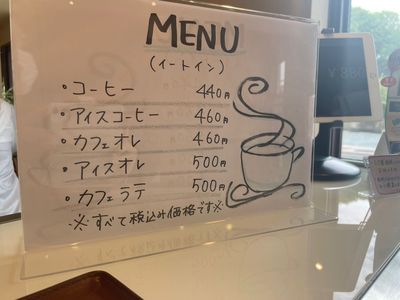 MENU
(イートイン)
・コーヒー 440円
・アイスコーヒー 460円
・カフェオレ 460円
・アイスオレ 500円
・カフェラテ 500円
※すべて税込み価格です※